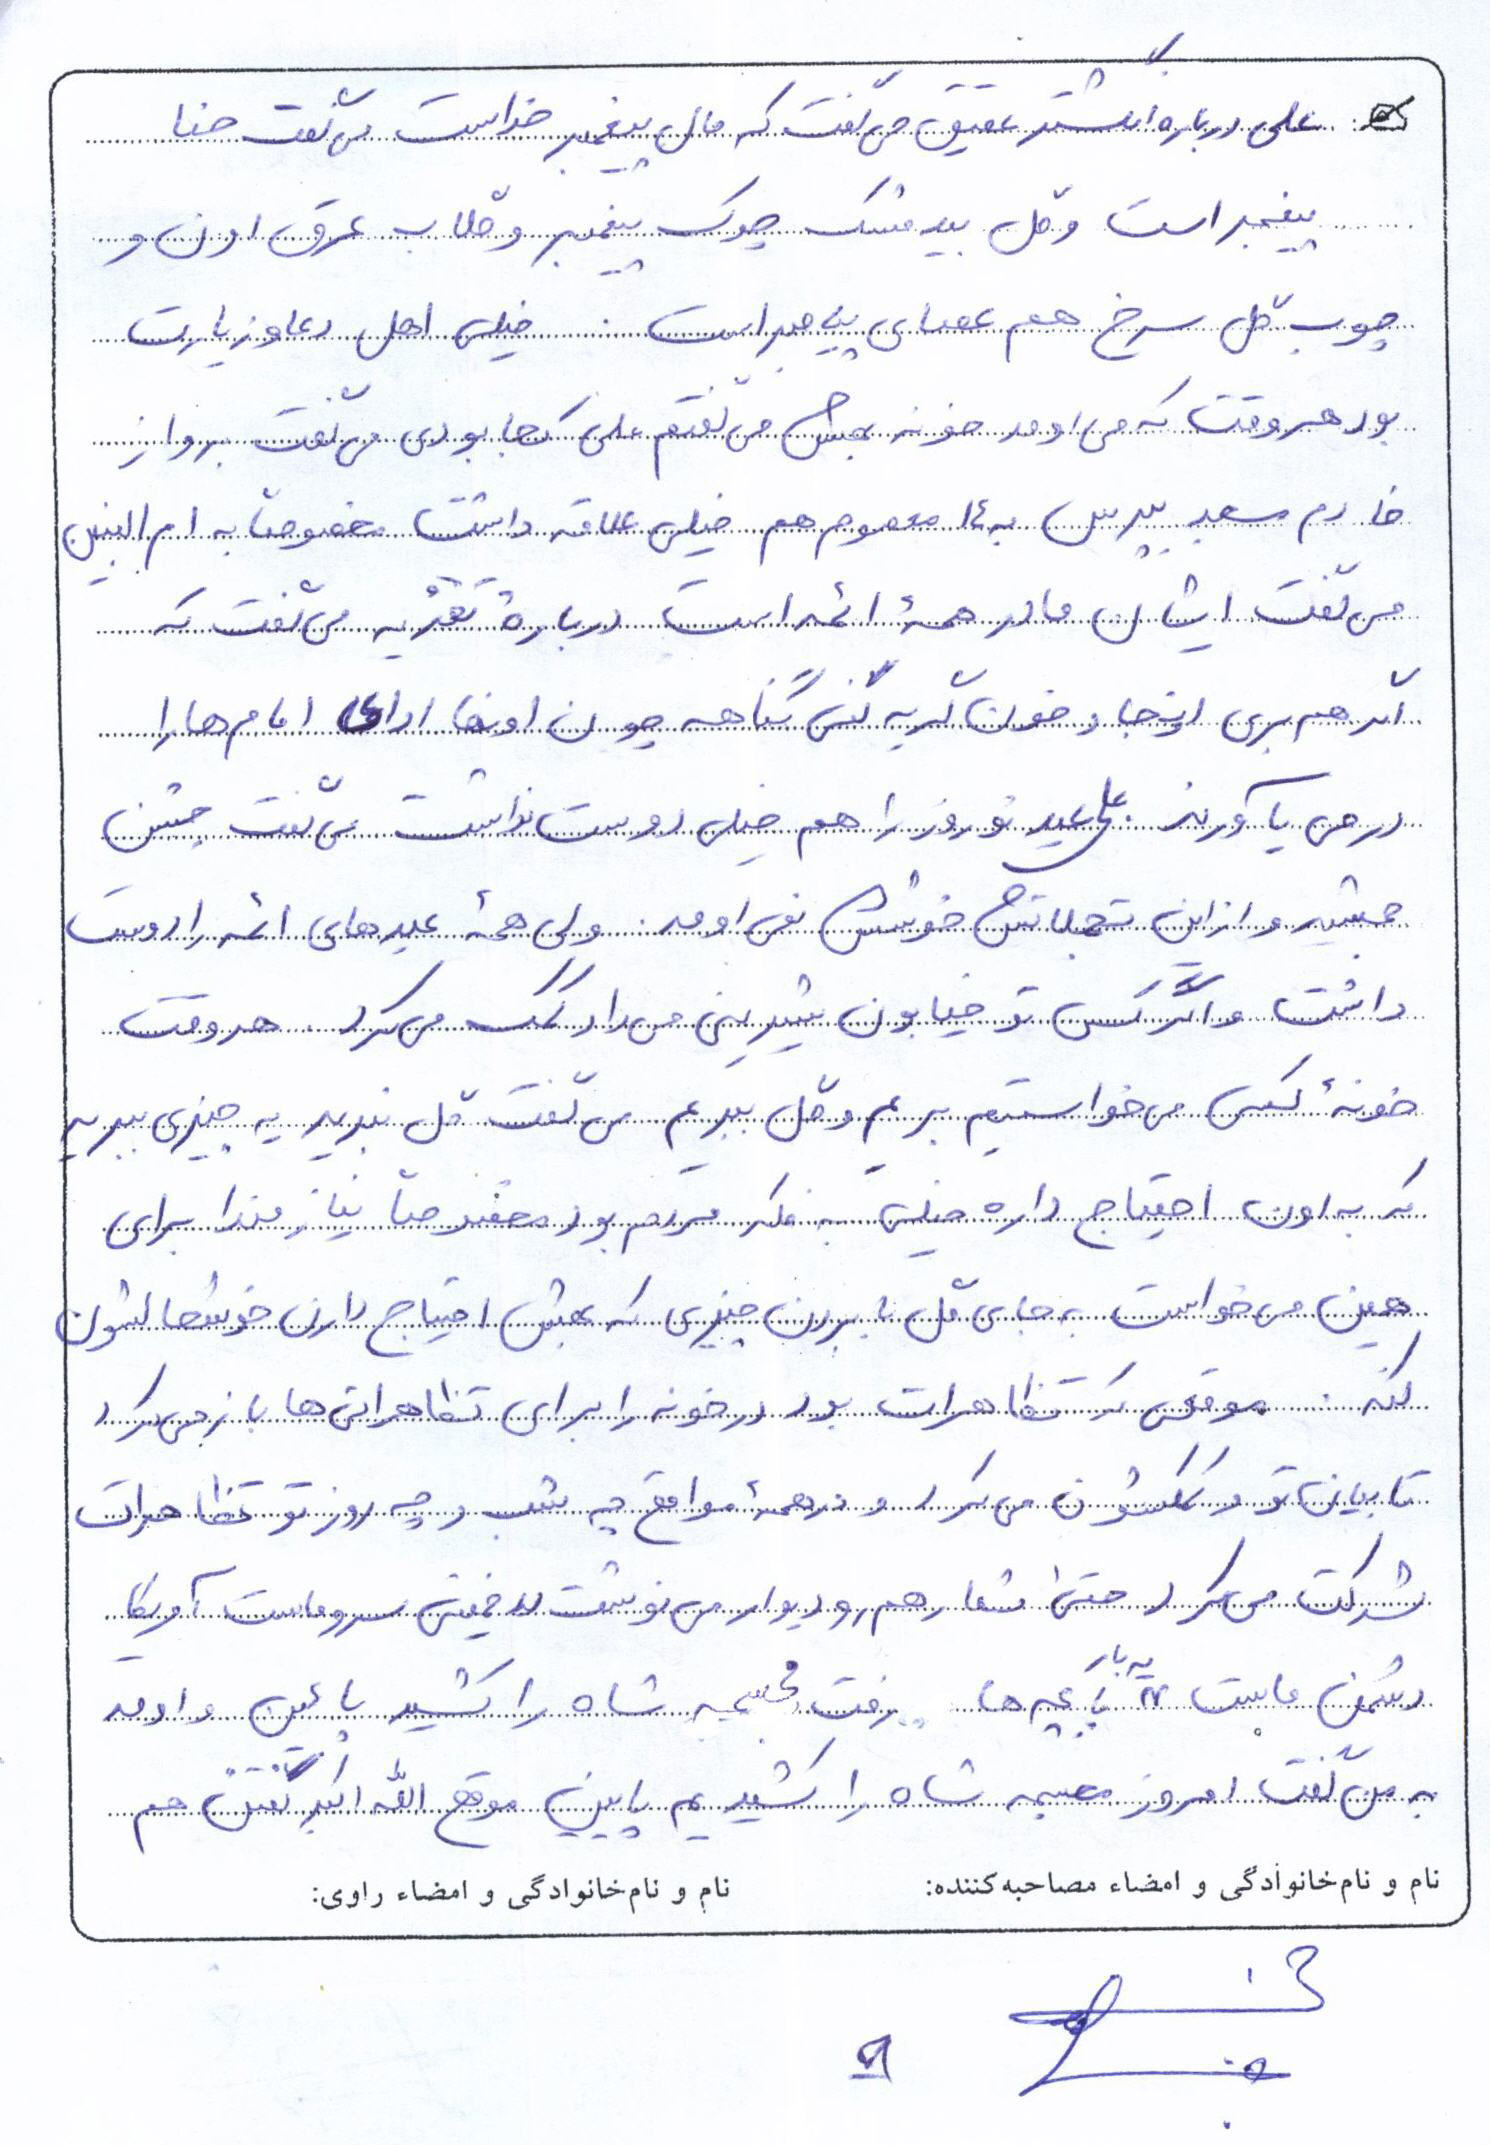 علی درباره انگشتر عقیق می گفت که مال پیغمبر خداست می گفت حنا
پیغمبر است و گل بیدمشک چوک پیغمبر و گلاب عرق اون و
چوب گل سرخ هم عصای پیامبر است . خیلی اهل دعا و زیارت
بود هر وقت که می اومد خونه بهش می گفتم علی کجا بودی می گفت برو از
خادم مسجد بپرس به ۱۴ معصوم هم خیلی علاقه داشت مخصوصاً به ام البنین
می گفت ایشان مادر همۀ ائمه است دربارۀ تعزیه می گفت که
اگر هم بری اونجا و خون گریه کنی گناهه چون اونها ادای امام ها را
در می یآورند . علی عید نوروز را هم خیلی دوست نداشت می گفت جشن
جمشید و از این تجملاتش خوشش نمی اومد . ولی همۀ عیدهای ائمه را دوست
داشت و اگر کسی تو خیابون شیرینی می داد کمک می کرد . هر وقت
خونۀ کسی می خواستیم بریم و گل ببریم می گفت گل نبرید یه چیزی ببرید
که به اون احتیاج داره خیلی به فکر مردم بود مخصوصاً نیازمندا برای
همین می خواست به جای گل با بردن چیزی که بهش احتیاج دارن خوشحالشون
کنه . موقعی که تظاهرات بود در خونه را برای تظاهراتی ها باز می کرد
تا بیان تو و کمکشون می کرد و در همۀ مواقع چه شب و چه روز تو تظاهرات
شرکت می کرد حتی شعار هم رو دیوار می نوشت خمینی سرور ماست آمریکا
دشمن ماست یه بار با بچه ها رفت مجسمه شاه را کشید پائین و اومد
به من گفت امروز مجسمه شاه را کشیدیم پایین موقع الله اکبر گفتن هم
نام و نام‌خانوادگی و امضاء مصاحبه‌کننده: نام و نام‌خانوادگی و امضاء راوی:
۹